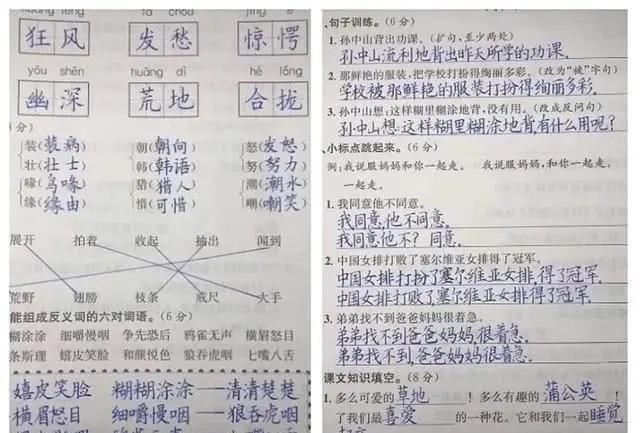 狂风 发愁 惊愕
yōu shēn huāng dì hé lǒng
幽深 荒地 合拢
分）
装(装病) 朝(朝向) 怒(发怒)
壮(壮士) 韩(韩语) 努(努力)
喙(鸟喙) 猎(猎人) 潮(潮水)
缘(缘由) 惜(可惜) 嘲(嘲笑)
展开 拍着 收起 抽出 闻到
荒野 翅膀 枝条 戒尺 大手
能组成反义词的六对词语。(6分)
糊涂涂 细嚼慢咽 争先恐后 鸦雀无声 横眉怒目
条斯理 嬉皮笑脸 和颜悦色 狼吞虎咽 七嘴八舌
嬉皮笑脸 糊糊涂涂——清清楚楚
横眉怒目 细嚼慢咽——狼吞虎咽
句子训练。(6分)
1. 孙中山背出功课。(扩句,至少两处)
孙中山流利地背出昨天所学的功课.
2. 那鲜艳的服装,把学校打扮得绚丽多彩。(改为“被”字句)
学校被那鲜艳的服装打扮得绚丽多彩.
3. 孙中山想:这样糊里糊涂地背,没有用。(改成反问句)
孙中山想:这样糊里糊涂地背有什么用呢?
小标点跳起来。(6分)
例:我说服妈妈和你一起走。 我说服妈妈,和你一起走。
一起走。
1. 我同意他不同意。
我同意,他不同意.
我同意他不?同意.
2. 中国女排打败了塞尔维亚女排得了冠军。
中国女排打扮了塞尔维亚女排,得了冠军.
中国女排打败了塞尔维亚女排得了冠军.
3. 弟弟找不到爸爸妈妈很着急。
弟弟找不到爸爸妈妈,很着急.
弟弟找不到,爸爸妈妈很着急.
课文知识填空。(8分)
1. 多么可爱的草地!多么有趣的蒲公英!
了我们最喜爱的一种花。它和我们一起睡觉